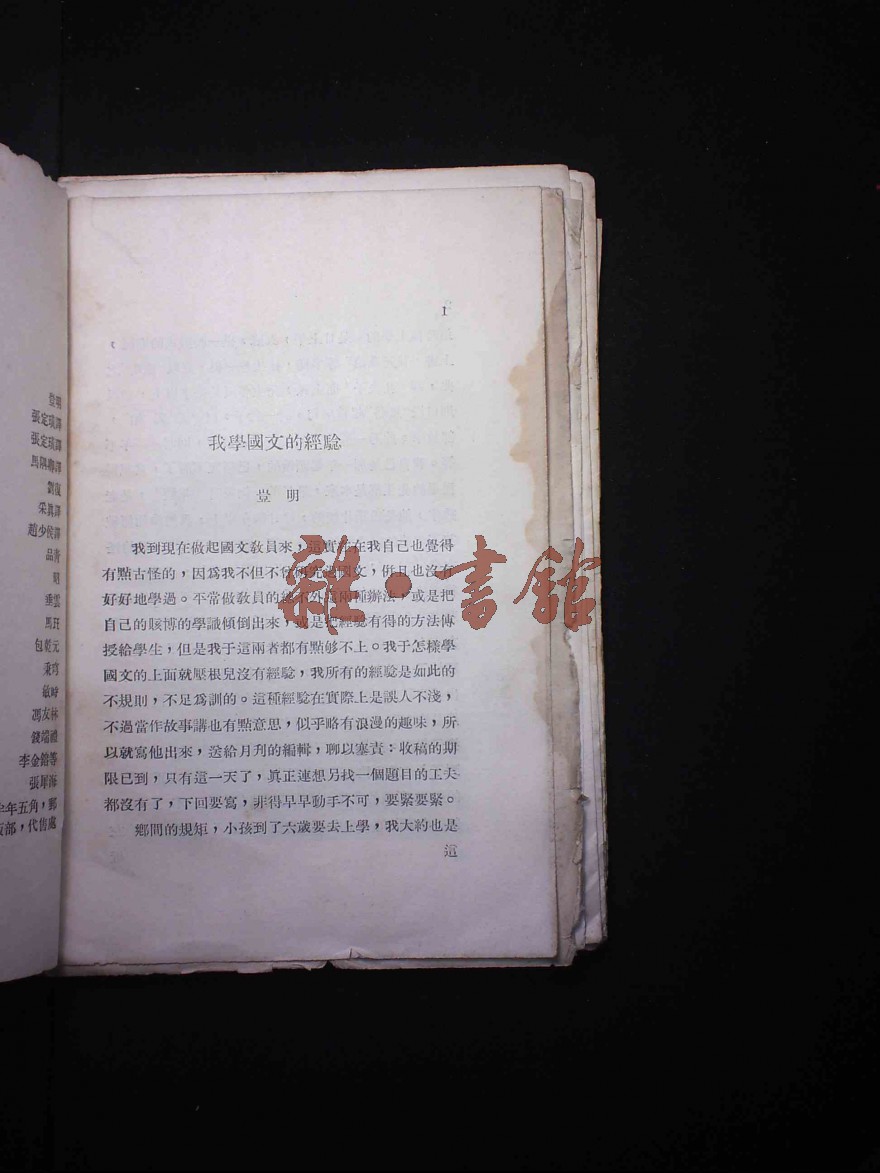 豈明
張定璜譯
張定璜譯
馬隅卿譯
劉復
采眞譯
趙少侯譯
品青
明
垂雲
馬玨
包乾元
秉穹
敬時
馮友林
錢端禮
李金鎔等
張犀海
年五角,郵
版部,代售處
1
我學國文的經驗
豈 明
我到現在做起國文教員來,這實在在我自己也覺得
有點古怪的,因爲我不但不曾研究過國文,倂且也沒有
好好地學過。平常做教員的總不外這兩種辦法,或是把
自己的賅博的學識傾倒出來,或是把經驗有得的方法傳
授給學生,但是我于這兩者都有點够不上。我于怎樣學
國文的上面就壓根兒沒有經驗,我所有的經驗是如此的
不規則,不足爲訓的。這種經驗在實際上是誤人不淺,
不過當作故事講也有點意思,似乎略有浪漫的趣味,所
以就寫他出來,送給月刋的編輯,聊以塞責:收稿的期
限已到,只有這一天了,真正連想另找一個題目的工夫
都沒有了,下回要寫,非得早早動手不可,要緊要緊。
鄉間的規矩,小孩到了六歲要去上學,我大約也是
這
雜·書館